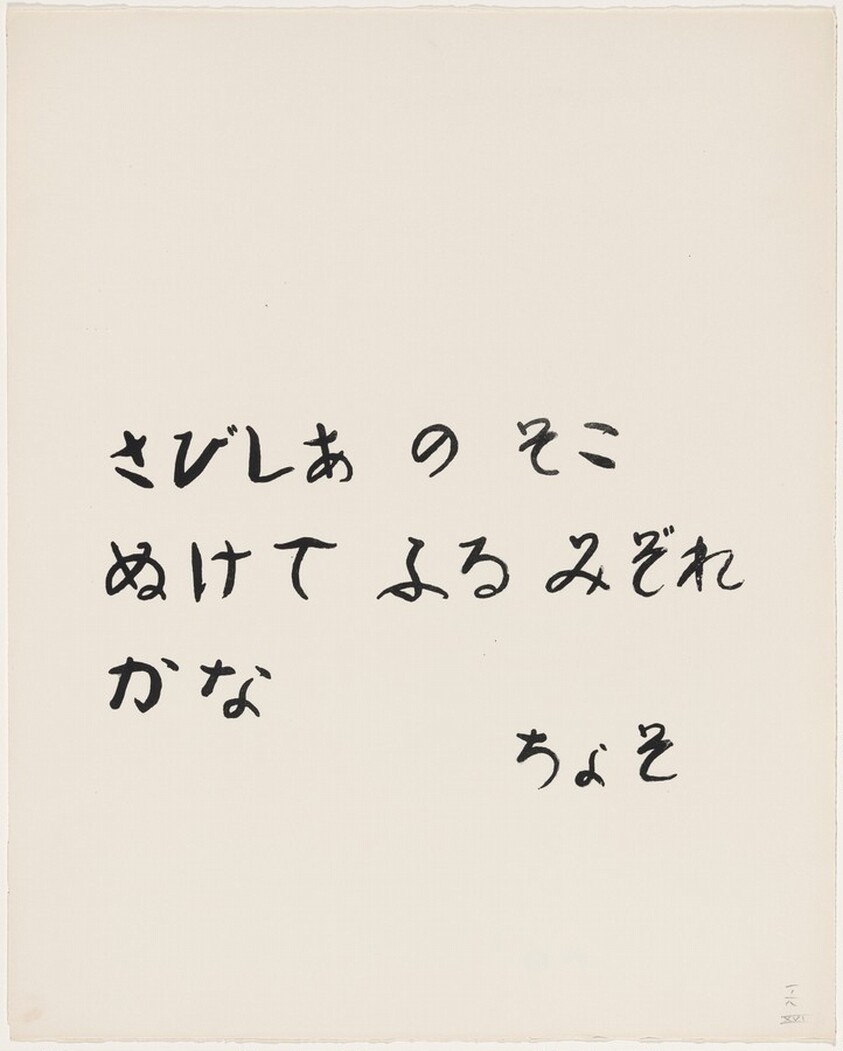 さびしあ の そこ
ぬけて ふる みぞれ
かな
ちょそ
XVI